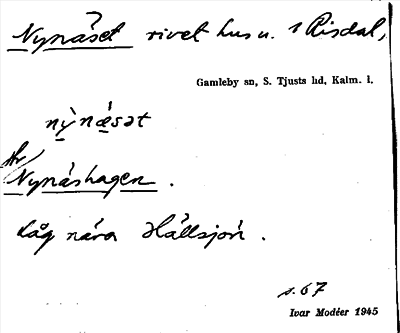 Nynäset rivet hus u. 1 Risdal,
Gamleby sn, S. Tjusts hd, Kalm. l.
nỳnǽsət
Av
Nynäshagen.
Låg nära Hällsjön.
s. 67
Ivar Modéer 1945